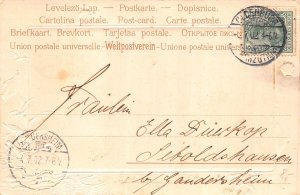 Levelező-Lap. — Postkarte. — Dopisnice.
Cartolina postale. — Post-card. — Carte postale.
Briefkaart. Brevkort. — Tarjetas postale. — Открытое письмо.
Union postale universelle — Weltpostverein — Unione postale universale
Fräulein
Ella Düerkop
Seboldshausen
by Gandersheim